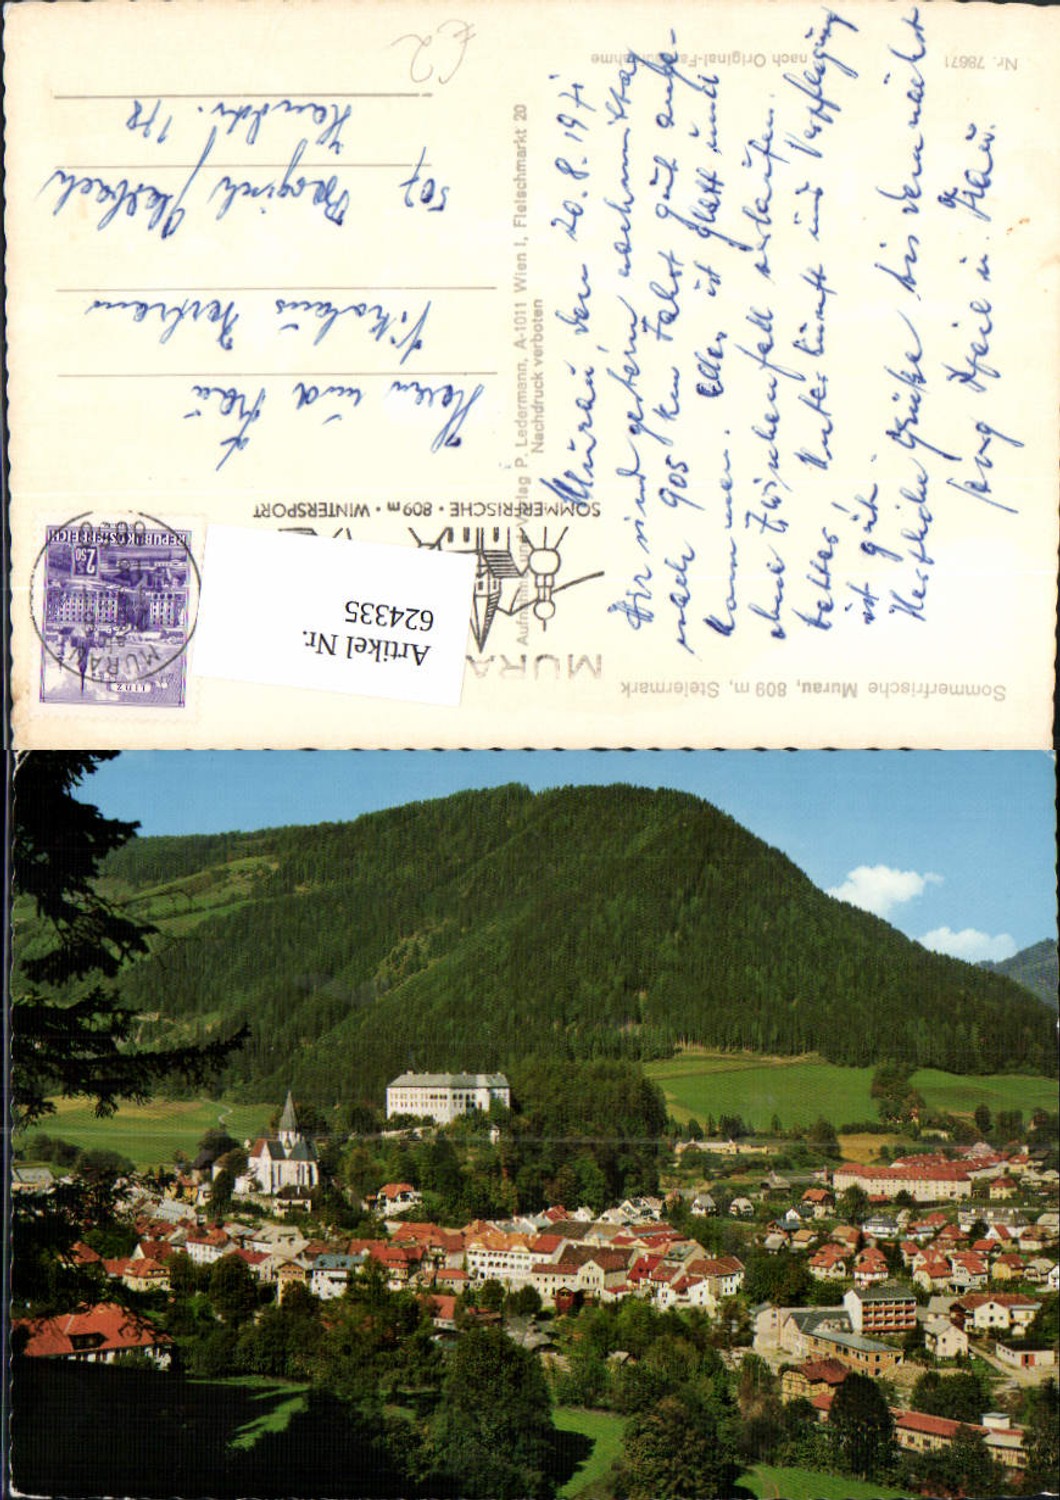 Sommerfrische Murau, 809 m, Steiermark
Murau den 20.8.1971
Wir sind gestern nachmittag
nach 905 km Fahrt gut ange-
kommen. Alles ist glatt und
ohne Zwischenfall verlaufen.
Wetter, Unterkunft und Verpflegung
ist gut.
Herzliche Grüße bis demnächst
Pfeil u. Frau.
Nr. 78671
nach Original-Farbaufnahme
Aufnahme und Verlag P. Ledermann, A-1011 Wien I, Fleischmarkt 20
Nachdruck verboten
MURA
SOMMERFRISCHE · 809 m · WINTERSPORT
Artikel Nr.
624335
MURAU
LINZ
2.50
REPUBLIK ÖSTERREICH
Herrn und Frau
Nikolaus
507 Bergisch Gladbach
Handstr. 178
€2